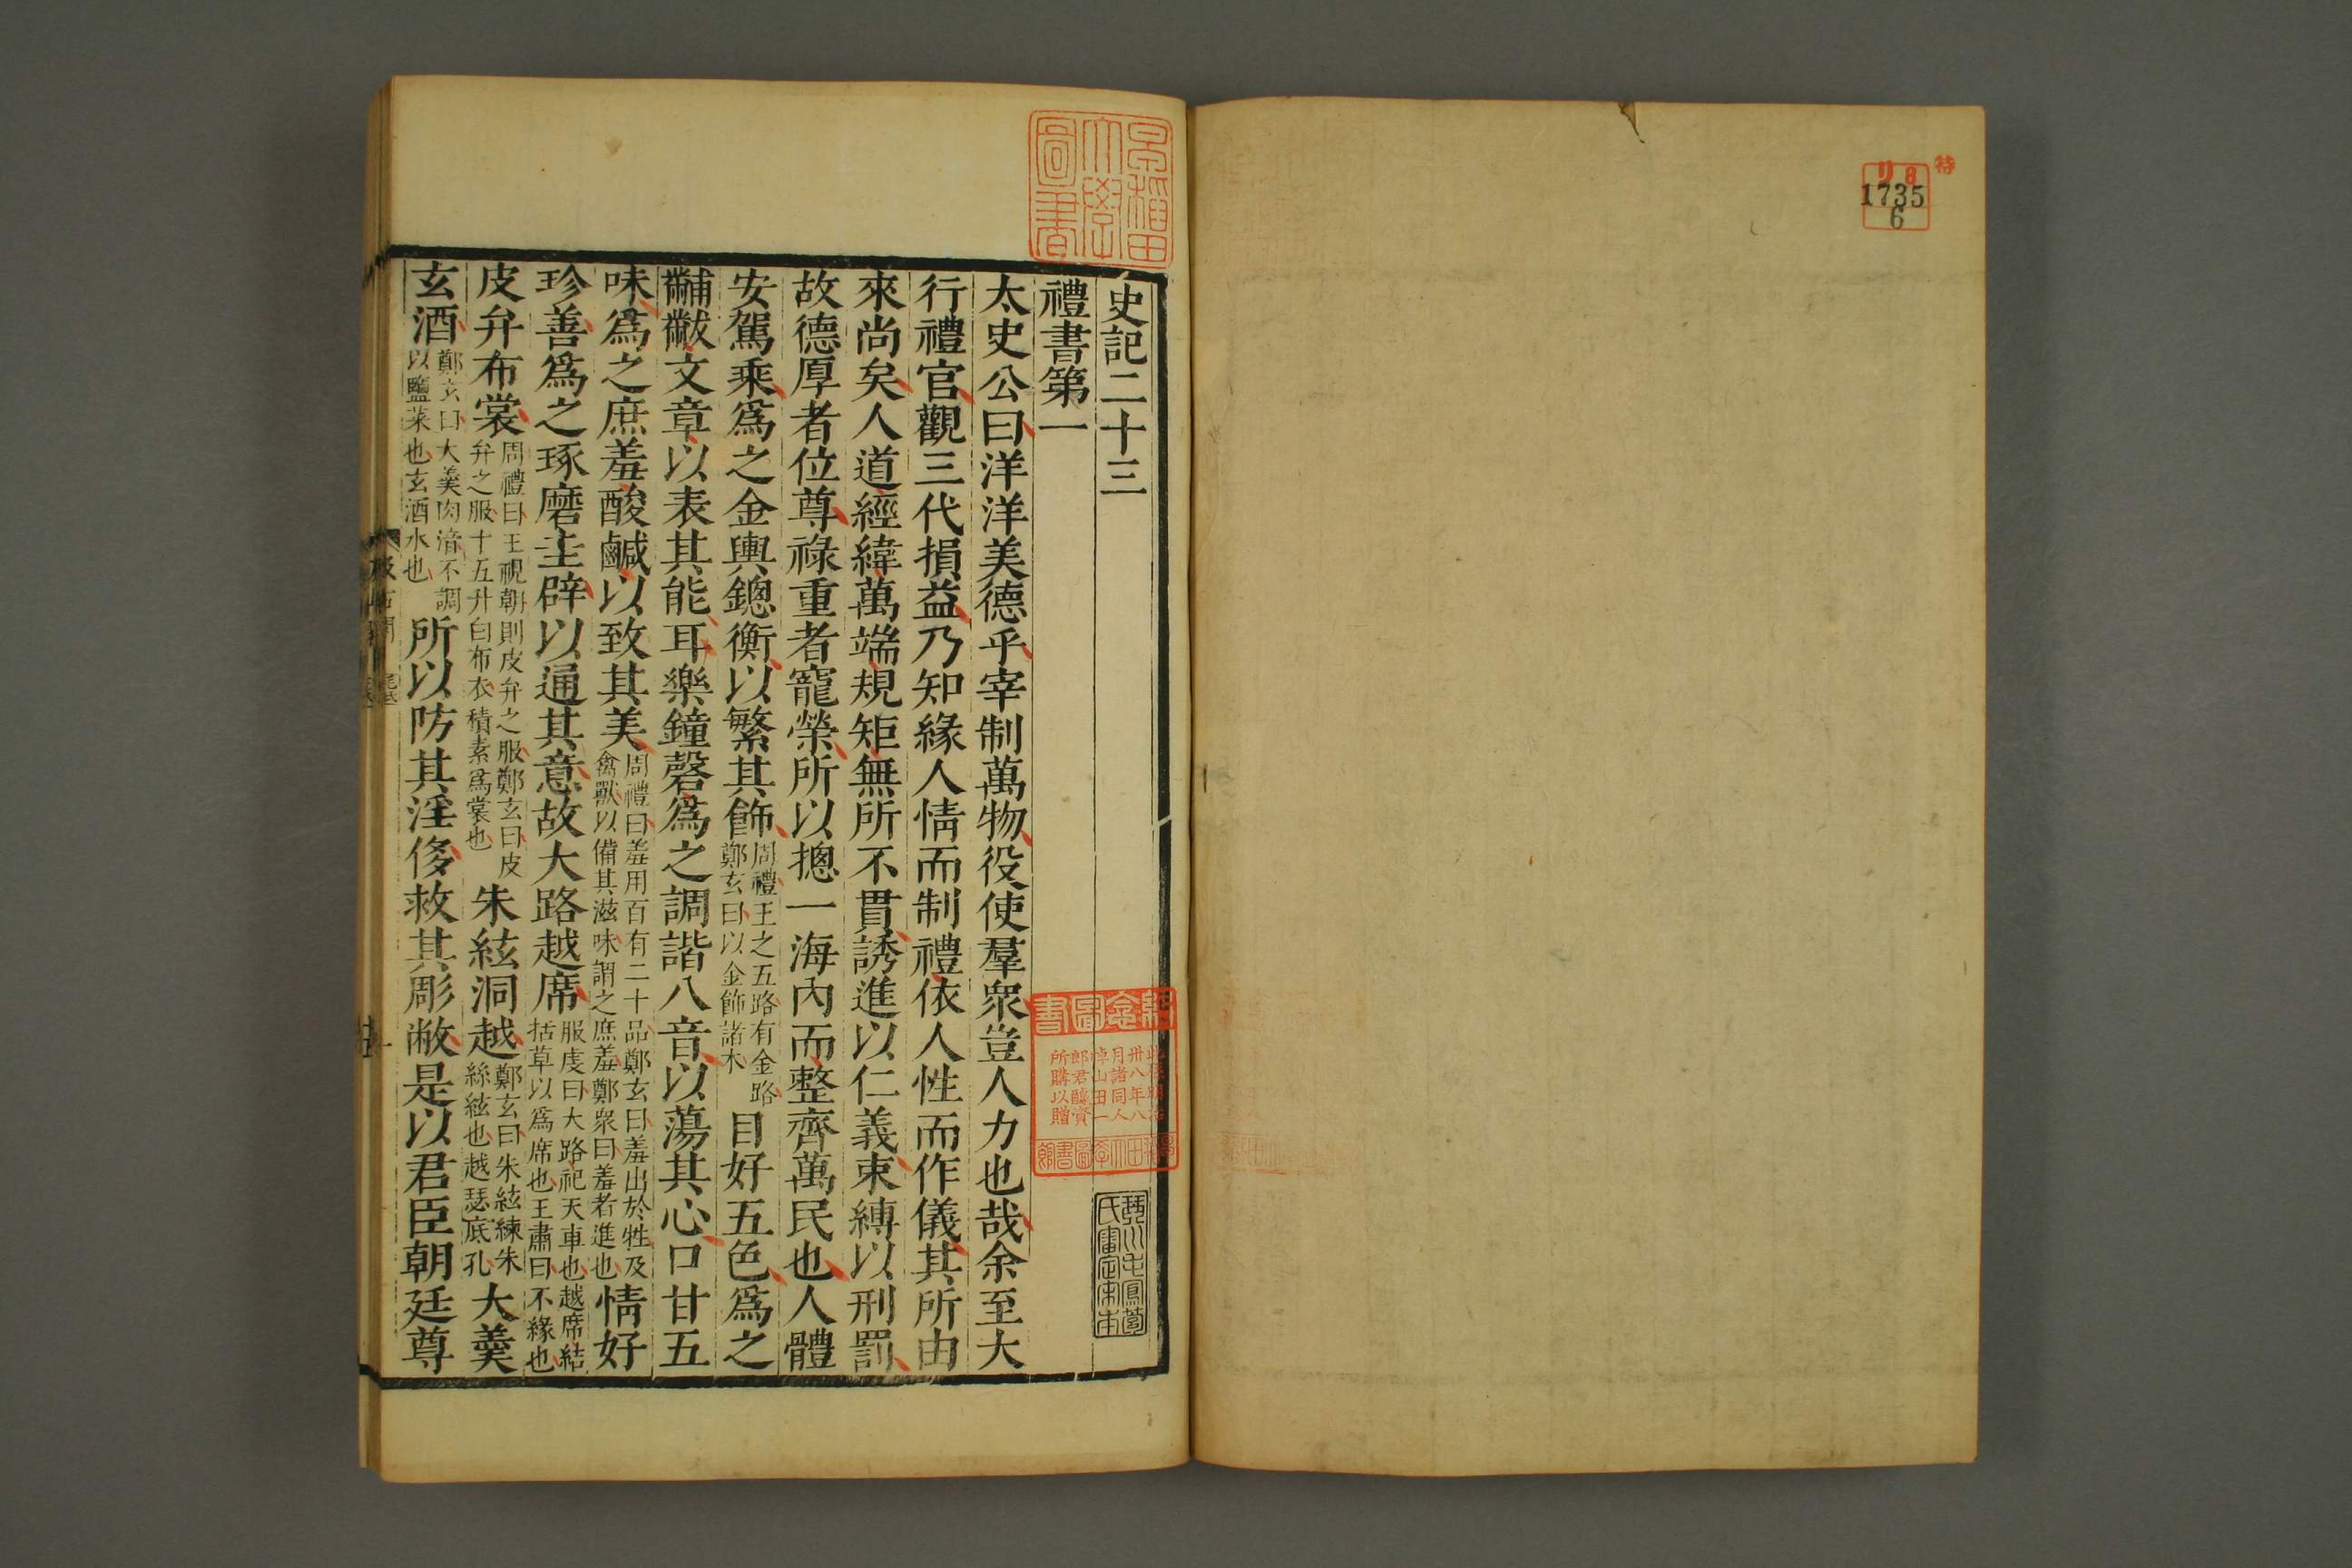 特
リ8
1735
6
早稲田
大學
圖書
史記二十三
禮書第一
太史公曰洋洋美德乎宰制萬物役使羣衆豈人力也哉余至大
行禮官觀三代損益乃知緣人情而制禮依人性而作儀其所由
來尚矣人道經緯萬端規矩無所不貫誘進以仁義束縛以刑罰
故德厚者位尊祿重者寵榮所以摠一海內而整齊萬民也人體
安駕乘爲之金輿鏓衡以繁其飾
周禮王之五路有金路
鄭玄曰以金飾諸末
目好五色爲之
黼黻文章以表其能耳樂鐘磬爲之調諧八音以蕩其心口甘五
味爲之庶羞酸鹹以致其美
周禮曰羞用百有二十品鄭玄曰羞出於牲及
禽獸以備其滋味謂之庶羞鄭衆曰羞者進也
情好
珍善爲之琢磨圭辟以通其意故大路越席
服虔曰大路祀天車也越席結
括草以爲席也王肅曰不緣也
皮弁布裳
周禮曰王視朝則皮弁之服鄭玄曰皮
弁之服十五升白布衣積素爲裳也
朱絃洞越
鄭玄曰朱絃練朱
絲絃也越瑟底孔
大羹
玄酒
鄭玄曰大羹肉湆不調
以鹽菜也玄酒水也
所以防其淫侈救其彫敝是以君臣朝廷尊
紀念圖書
卅八年八
月諸同人
悼山田一
郎君醵資
所購以贈
早稲田大學圖書館